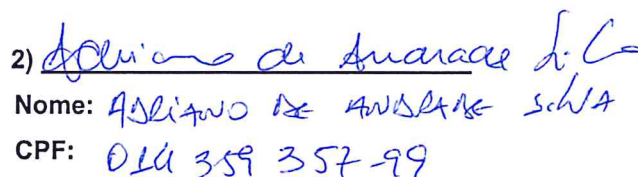 2) Adriano de Andrade Silva
Nome: ADRIANO DE ANDRADE SILVA
CPF: 014 359 357-99